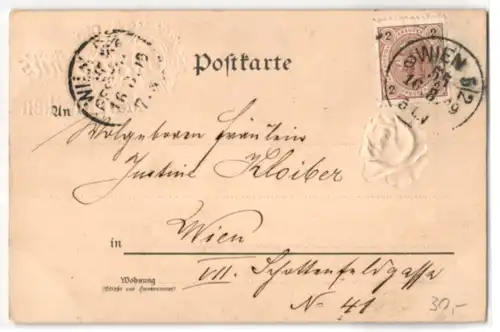 Postkarte
2 2
2 2
WIEN 5/2
16.8. 99
WIEN
An
Wolgeboren Fräulein
Justine Kloiber
Wien
in
VII. Schottenfeldgasse
Wohnung
(Straße und Hausnummer)
No 41
30,-